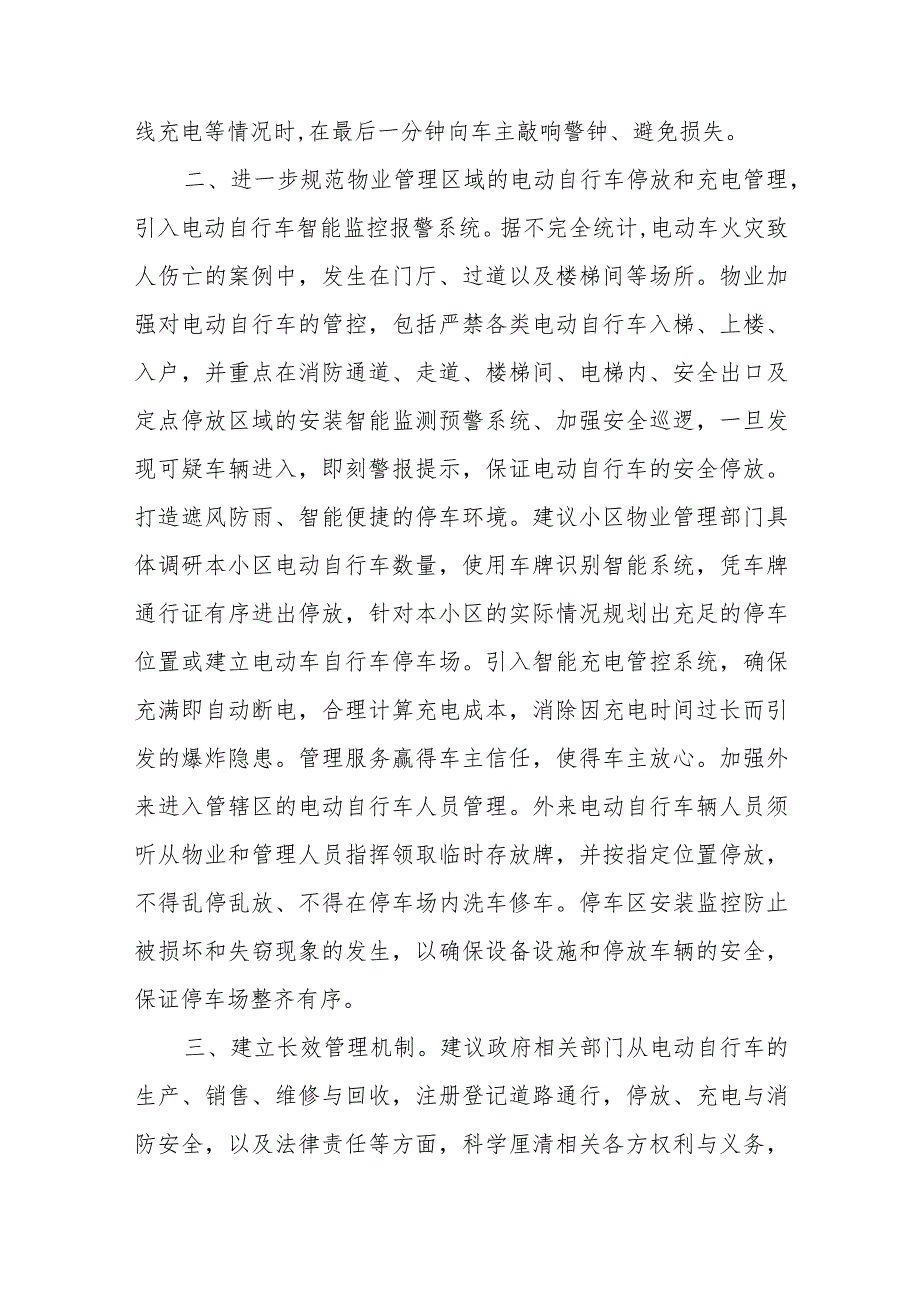 线充电等情况时,在最后一分钟向车主敲响警钟、避免损失。
二、进一步规范物业管理区域的电动自行车停放和充电管理，
引入电动自行车智能监控报警系统。据不完全统计,电动车火灾致
人伤亡的案例中，发生在门厅、过道以及楼梯间等场所。物业加
强对电动自行车的管控，包括严禁各类电动自行车入梯、上楼、
入户，并重点在消防通道、走道、楼梯间、电梯内、安全出口及
定点停放区域的安装智能监测预警系统、加强安全巡逻，一旦发
现可疑车辆进入，即刻警报提示，保证电动自行车的安全停放。
打造遮风防雨、智能便捷的停车环境。建议小区物业管理部门具
体调研本小区电动自行车数量，使用车牌识别智能系统，凭车牌
通行证有序进出停放，针对本小区的实际情况规划出充足的停车
位置或建立电动车自行车停车场。引入智能充电管控系统，确保
充满即自动断电，合理计算充电成本，消除因充电时间过长而引
发的爆炸隐患。管理服务赢得车主信任，使得车主放心。加强外
来进入管辖区的电动自行车人员管理。外来电动自行车辆人员须
听从物业和管理人员指挥领取临时存放牌，并按指定位置停放，
不得乱停乱放、不得在停车场内洗车修车。停车区安装监控防止
被损坏和失窃现象的发生，以确保设备设施和停放车辆的安全，
保证停车场整齐有序。
三、建立长效管理机制。建议政府相关部门从电动自行车的
生产、销售、维修与回收，注册登记道路通行，停放、充电与消
防安全，以及法律责任等方面，科学厘清相关各方权利与义务，